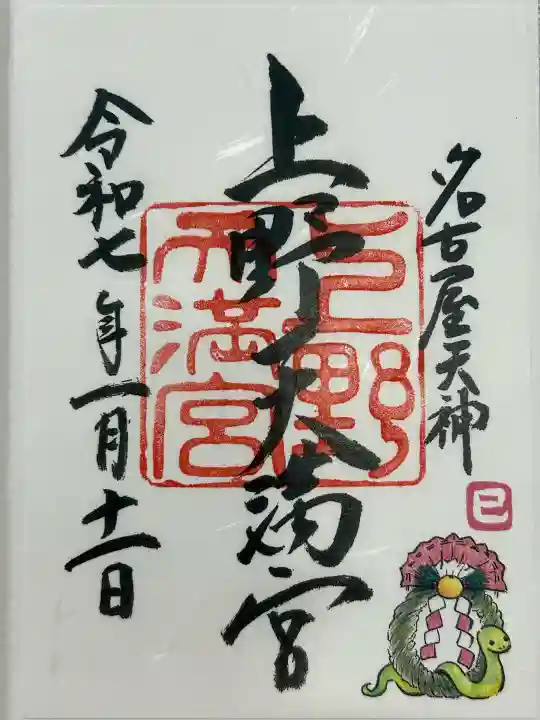 名古屋天神
巳
上野天満宮
上野
天満宮
令和七年一月十一日